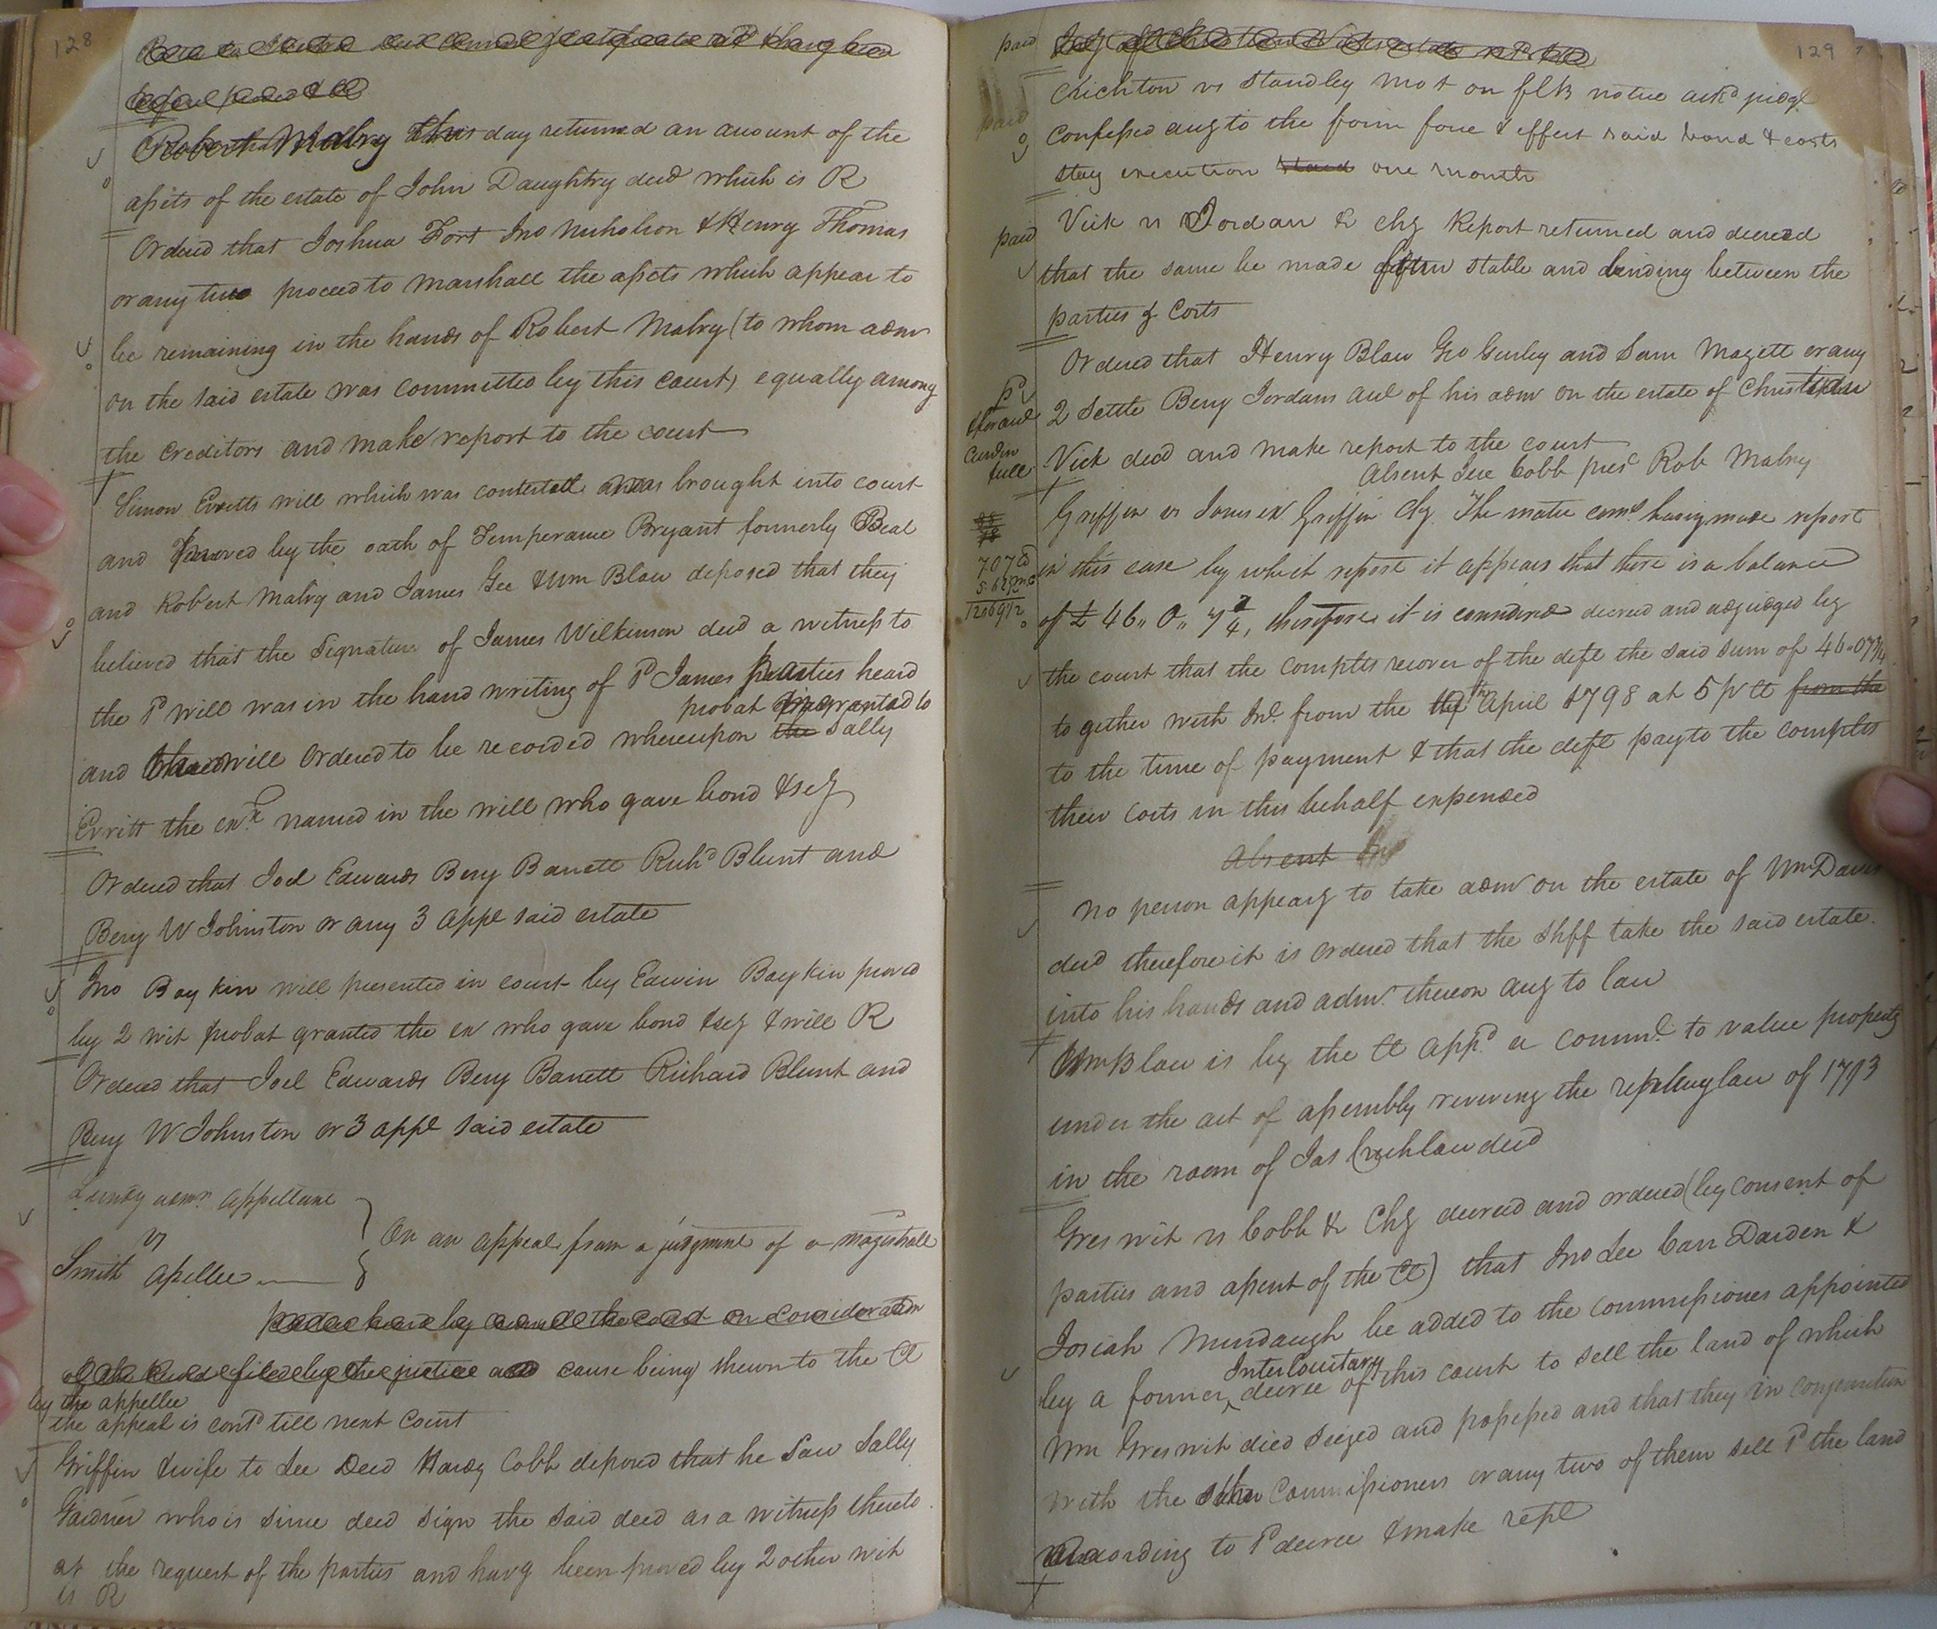 128
Robert Malry this day returned an amount of the
assits of the estate of John Daughtry decd which is R
Ordered that Joshua Fort Jno Nicholson & Henry Thomas
or any two proceed to marshall the assets which appear to
be remaining in the hands of Robert Malry (to whom admr
on the said estate was committed by this court) equally among
the creditors and make report to the court
Simon Evritts will which was contested was brought into court
and proved by the oath of Temperance Bryant formerly Beal
and Robert Malry and James Gee & Wm Blow deposed that they
believed that the Signature of James Wilkinson decd a witness to
the sd will was in the hand writing of sd James parties heard
probat granted to
and will ordered to be recorded whereupon the Sally
Evritt the exx named in the will who gave bond & sey
Ordered that Joel Edwards Benj Barrett Richd Blunt and
Benj W Johnston or any 3 appe said estate
Jno Boykin will presented in court by Edwin Boykin proved
by 2 wit probat granted the ex who gave bond & sey & will R
Ordered that Joel Edwards Benj Barrett Richard Blunt and
Benj W Johnston or 3 appe said estate
Lundy admr appellant
vs
On an appeal from a judgment of a magistrate
Smith apellee
cause being shewn to the Ct
by the appellee
the appeal is contd till next Court
Griffin & wife to Lee Deed Hardy Cobb deposed that he saw Sally
Gardner who is since decd sign the said deed as a witness thereto
at the request of the parties and havg been proved by 2 other wit
is R
129
paid
Crichton vs Standley mot on flb notice ackd judgt
paid
confessed aug to the form force & effect said bond & costs
stay execution one month
paid
Vick vs Jordan & chy Report returned and decreed
that the same be made stable and binding between the
parties & Costs
Ordered that Henry Blow Geo Gurley and Sam Magett or any
2 Settle Benj Jordans acct of his admr on the estate of Christian
Vick decd and make report to the court
full
Absent Jere Cobb prest Rob Malry
Griffin vs Jones ex Griffin Chy The master comr having made report
in this case by which report it appears that there is a balance
of £ 46,, 0,, 7¾, therefore it is considered decreed and adjudged by
the court that the complts recover of the deft the said sum of 46.07¾
together with Int from the April 1798 at 5 pr Ct from the
to the time of payment & that the deft pay to the complts
their costs in this behalf expended
Absent
No person appearg to take admr on the estate of Wm Davis
decd therefore it is ordered that the Shff take the said estate
into his hands and admr thereon aug to law
Wm Blow is by the Ct appd a commr to value property
under the act of assembly reviving the replevy law of 1793
in the room of Jas Crichlow decd
Greswit vs Cobb & Chy decreed and ordered (by consent of
parties and assent of the Ct) that Jno Lee Carr Darden &
Josiah Mundaugh be added to the commissioners appointed
Interlocutary
by a former decree of this court to sell the land of which
Wm Greswit died seized and possessed and that they in conjunction
with the other Commissioners or any two of them sell sd the land
according to sd decree & make repl